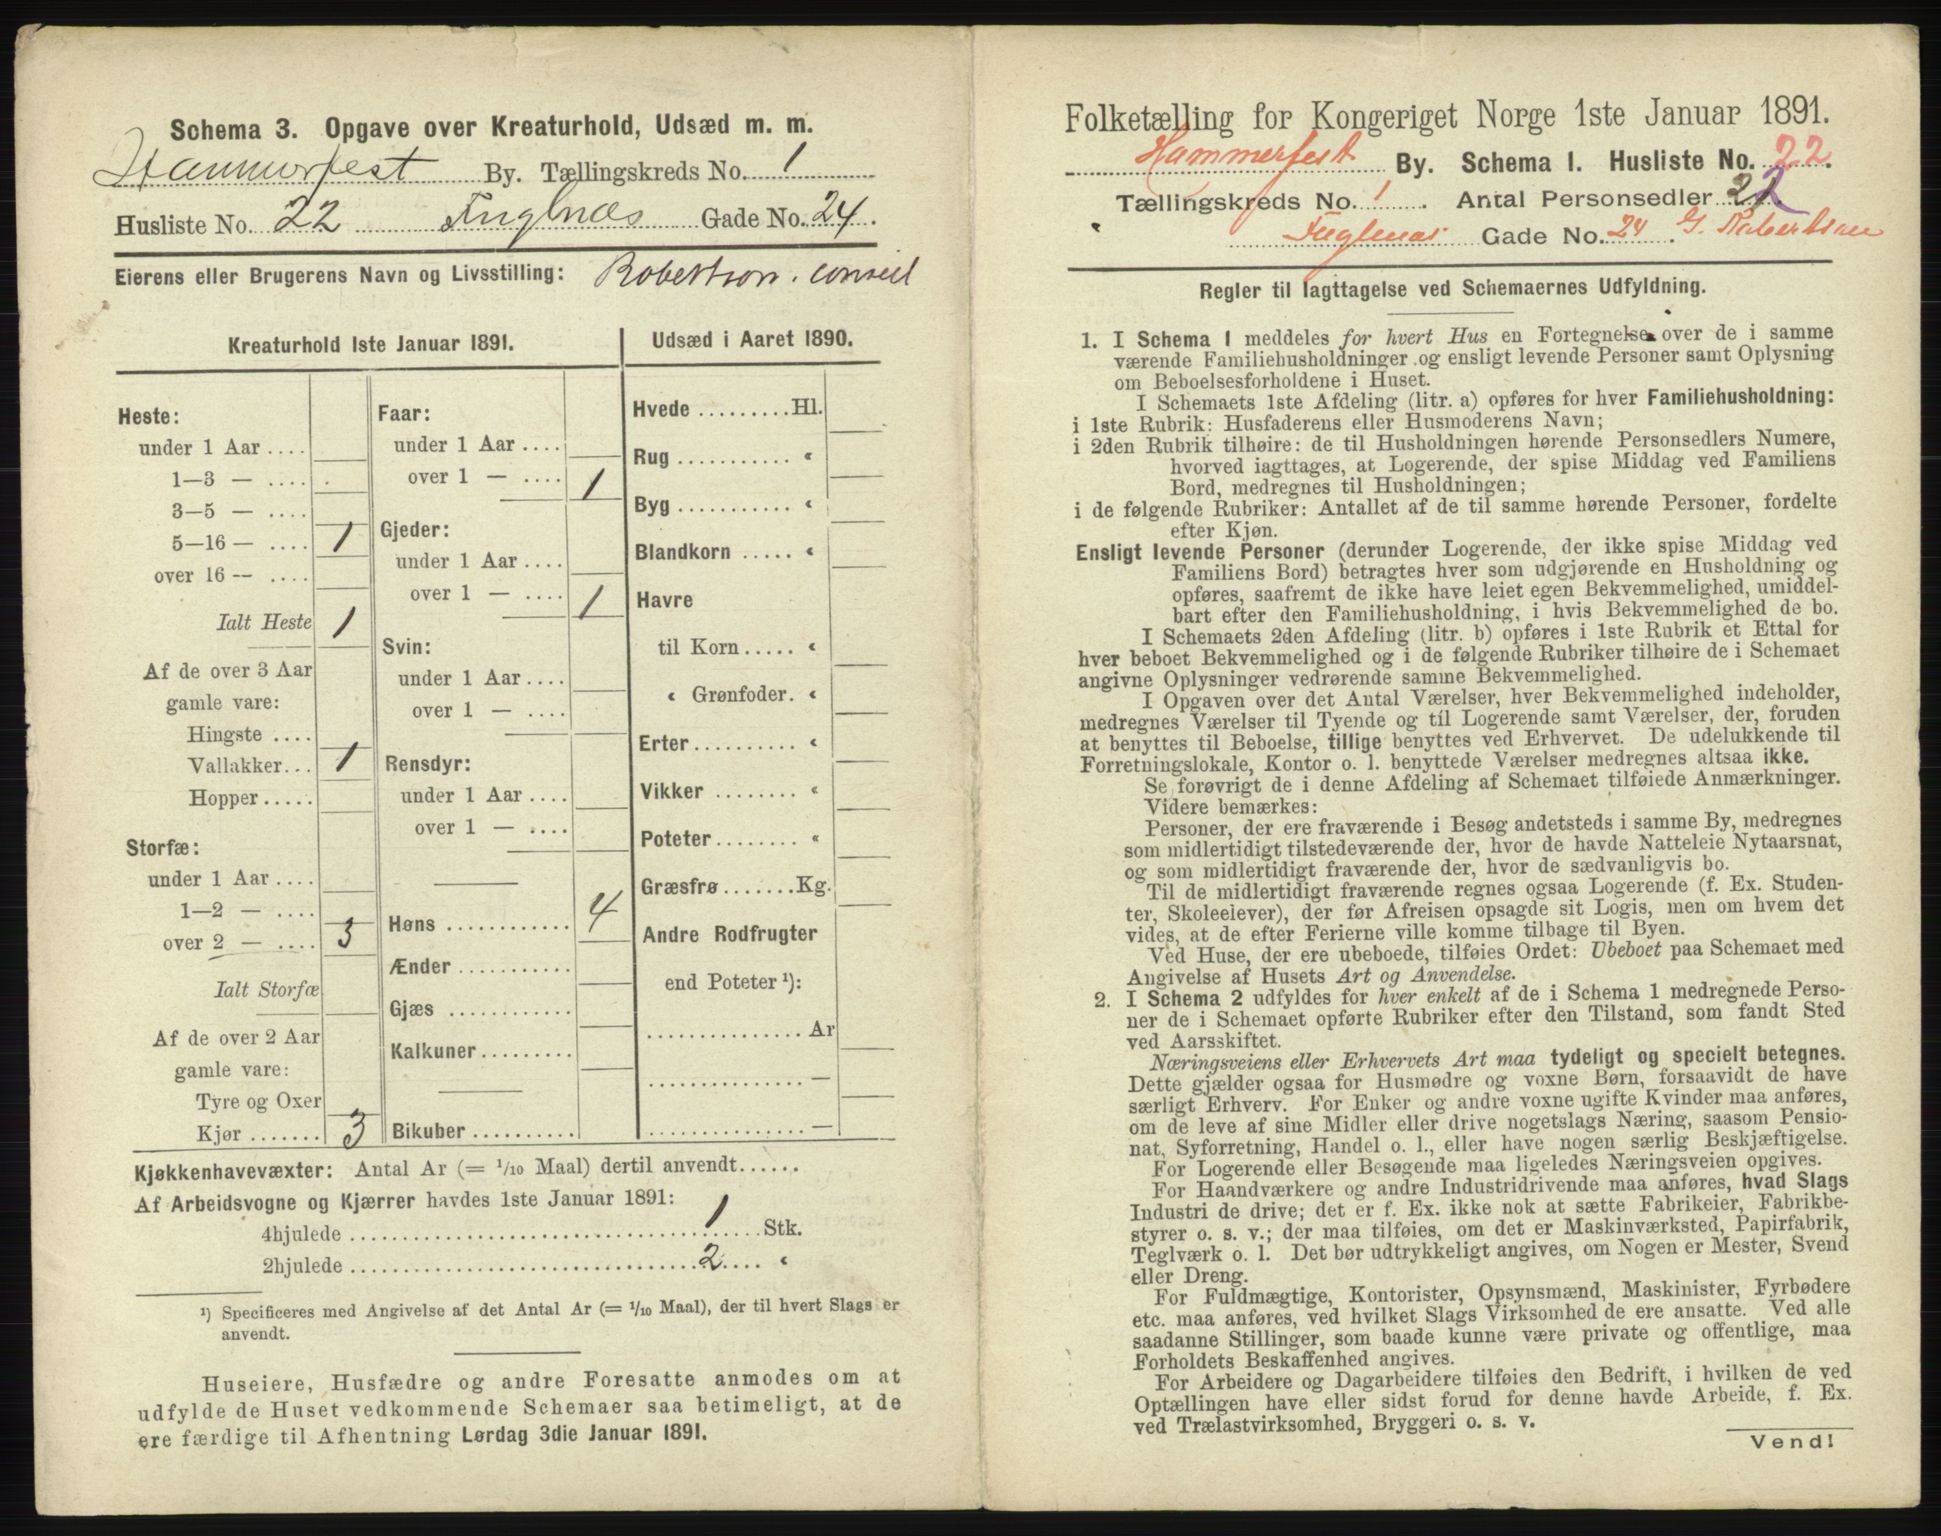 Schema 3. Opgave over Kreaturhold, Udsæd m. m.
Hammerfest By. Tællingskreds No. 1
Husliste No. 22 Fuglnæs Gade No. 24.
Eierens eller Brugerens Navn og Livsstilling: Robertson. consul
Kreaturhold 1ste Januar 1891.
Heste:
under 1 Aar ....
1—3 — ....
3—5 — ....
5—16 — .... 1
over 16 — ....
Ialt Heste 1
Af de over 3 Aar
gamle vare:
Hingste ....
Vallakker... 1
Hopper.....
Storfæ:
under 1 Aar ....
1—2 — ....
over 2 — .... 3
Ialt Storfæ
Af de over 2 Aar
gamle vare:
Tyre og Oxer
Kjør ....... 3
Faar:
under 1 Aar ....
over 1 — .... 1
Gjeder:
under 1 Aar ....
over 1 — .... 1
Svin:
under 1 Aar ....
over 1 — ....
Rensdyr:
under 1 Aar ....
over 1 — ....
Høns ............ 4
Ænder ...........
Gjæs ............
Kalkuner.........
Bikuber ..........
Udsæd i Aaret 1890.
Hvede .........Hl.
Rug ........... "
Byg ........... "
Blandkorn ..... "
Havre
til Korn..... "
" Grønfoder. "
Erter.......... "
Vikker ........ "
Poteter........ "
Græsfrø .......Kg.
Andre Rodfrugter
end Poteter ¹):
................ Ar
................ —
................ —
Kjøkkenhavevæxter: Antal Ar (= 1/10 Maal) dertil anvendt......
Af Arbeidsvogne og Kjærrer havdes 1ste Januar 1891:
4hjulede ................ 1 .... Stk.
2hjulede ................ 2 .... "
¹) Specificeres med Angivelse af det Antal Ar (= 1/10 Maal), der til hvert Slags er
anvendt.
Huseiere, Husfædre og andre Foresatte anmodes om at
udfylde de Huset vedkommende Schemaer saa betimeligt, at de
ere færdige til Afhentning Lørdag 3die Januar 1891.
Folketælling for Kongeriget Norge 1ste Januar 1891.
Hammerfest By. Schema 1. Husliste No. 22.
Tællingskreds No. 1. Antal Personsedler 22.
Fuglenæs Gade No. 24. G. Robertson
Regler til Iagttagelse ved Schemaernes Udfyldning.
1. I Schema 1 meddeles for hvert Hus en Fortegnelse over de i samme
værende Familiehusholdninger og ensligt levende Personer samt Oplysning
om Beboelsesforholdene i Huset.
I Schemaets 1ste Afdeling (litr. a) opføres for hver Familiehusholdning:
i 1ste Rubrik: Husfaderens eller Husmoderens Navn;
i 2den Rubrik tilhøire: de til Husholdningen hørende Personsedlers Numere,
hvorved iagttages, at Logerende, der spise Middag ved Familiens
Bord, medregnes til Husholdningen;
i de følgende Rubriker: Antallet af de til samme hørende Personer, fordelte
efter Kjøn.
Ensligt levende Personer (derunder Logerende, der ikke spise Middag ved
Familiens Bord) betragtes hver som udgjørende en Husholdning og
opføres, saafremt de ikke have leiet egen Bekvemmelighed, umiddel-
bart efter den Familiehusholdning, i hvis Bekvemmelighed de bo.
I Schemaets 2den Afdeling (litr. b) opføres i 1ste Rubrik et Ettal for
hver beboet Bekvemmelighed og i de følgende Rubriker tilhøire de i Schemaet
angivne Oplysninger vedrørende samme Bekvemmelighed.
I Opgaven over det Antal Værelser, hver Bekvemmelighed indeholder,
medregnes Værelser til Tyende og til Logerende samt Værelser, der, foruden
at benyttes til Beboelse, tillige benyttes ved Erhvervet. De udelukkende til
Forretningslokale, Kontor o. l. benyttede Værelser medregnes altsaa ikke.
Se forøvrigt de i denne Afdeling af Schemaet tilføiede Anmærkninger.
Videre bemærkes:
Personer, der ere fraværende i Besøg andetsteds i samme By, medregnes
som midlertidigt tilstedeværende der, hvor de havde Natteleie Nytaarsnat,
og som midlertidigt fraværende der, hvor de sædvanligvis bo.
Til de midlertidigt fraværende regnes ogsaa Logerende (f. Ex. Studen-
ter, Skoleelever), der før Afreisen opsagde sit Logis, men om hvem det
vides, at de efter Ferierne ville komme tilbage til Byen.
Ved Huse, der ere ubeboede, tilføies Ordet: Ubeboet paa Schemaet med
Angivelse af Husets Art og Anvendelse.
2. I Schema 2 udfyldes for hver enkelt af de i Schema 1 medregnede Perso-
ner de i Schemaet opførte Rubriker efter den Tilstand, som fandt Sted
ved Aarsskiftet.
Næringsveiens eller Erhvervets Art maa tydeligt og specielt betegnes.
Dette gjælder ogsaa for Husmødre og voxne Børn, forsaavidt de have
særligt Erhverv. For Enker og andre voxne ugifte Kvinder maa anføres,
om de leve af sine Midler eller drive nogetslags Næring, saasom Pensio-
nat, Syforretning, Handel o. l., eller have nogen særlig Beskjæftigelse.
For Logerende eller Besøgende maa ligeledes Næringsveien opgives.
For Haandværkere og andre Industridrivende maa anføres, hvad Slags
Industri de drive; det er f. Ex. ikke nok at sætte Fabrikeier, Fabrikbe-
styrer o. s. v.; der maa tilføies, om det er Maskinværksted, Papirfabrik,
Teglværk o. l. Det bør udtrykkeligt angives, om Nogen er Mester, Svend
eller Dreng.
For Fuldmægtige, Kontorister, Opsynsmænd, Maskinister, Fyrbødere
etc. maa anføres, ved hvilket Slags Virksomhed de ere ansatte. Ved alle
saadanne Stillinger, som baade kunne være private og offentlige, maa
Forholdets Beskaffenhed angives.
For Arbeidere og Dagarbeidere tilføies den Bedrift, i hvilken de ved
Optællingen have eller sidst forud for denne havde Arbeide, f. Ex.
ved Trælastvirksomhed, Bryggeri o. s. v.
Vend!